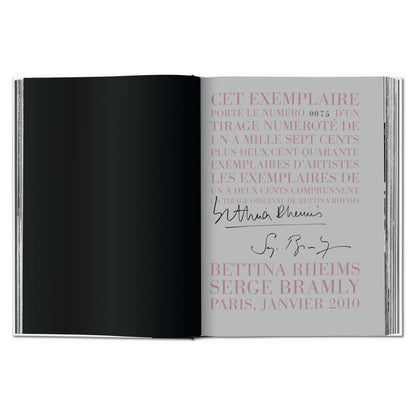 CET EXEMPLAIRE
PORTE LE NUMÉRO 0075 D'UN
TIRAGE NUMÉROTÉ DE
UN À MILLE SEPT CENTS
PLUS DEUX CENT QUARANTE
EXEMPLAIRES D'ARTISTES
LES EXEMPLAIRES DE
UN À DEUX CENTS COMPRENNENT
UN TIRAGE ORIGINAL DE BETTINA RHEIMS
Bettina Rheims
Serge Bramly
BETTINA RHEIMS
SERGE BRAMLY
PARIS, JANVIER 2010